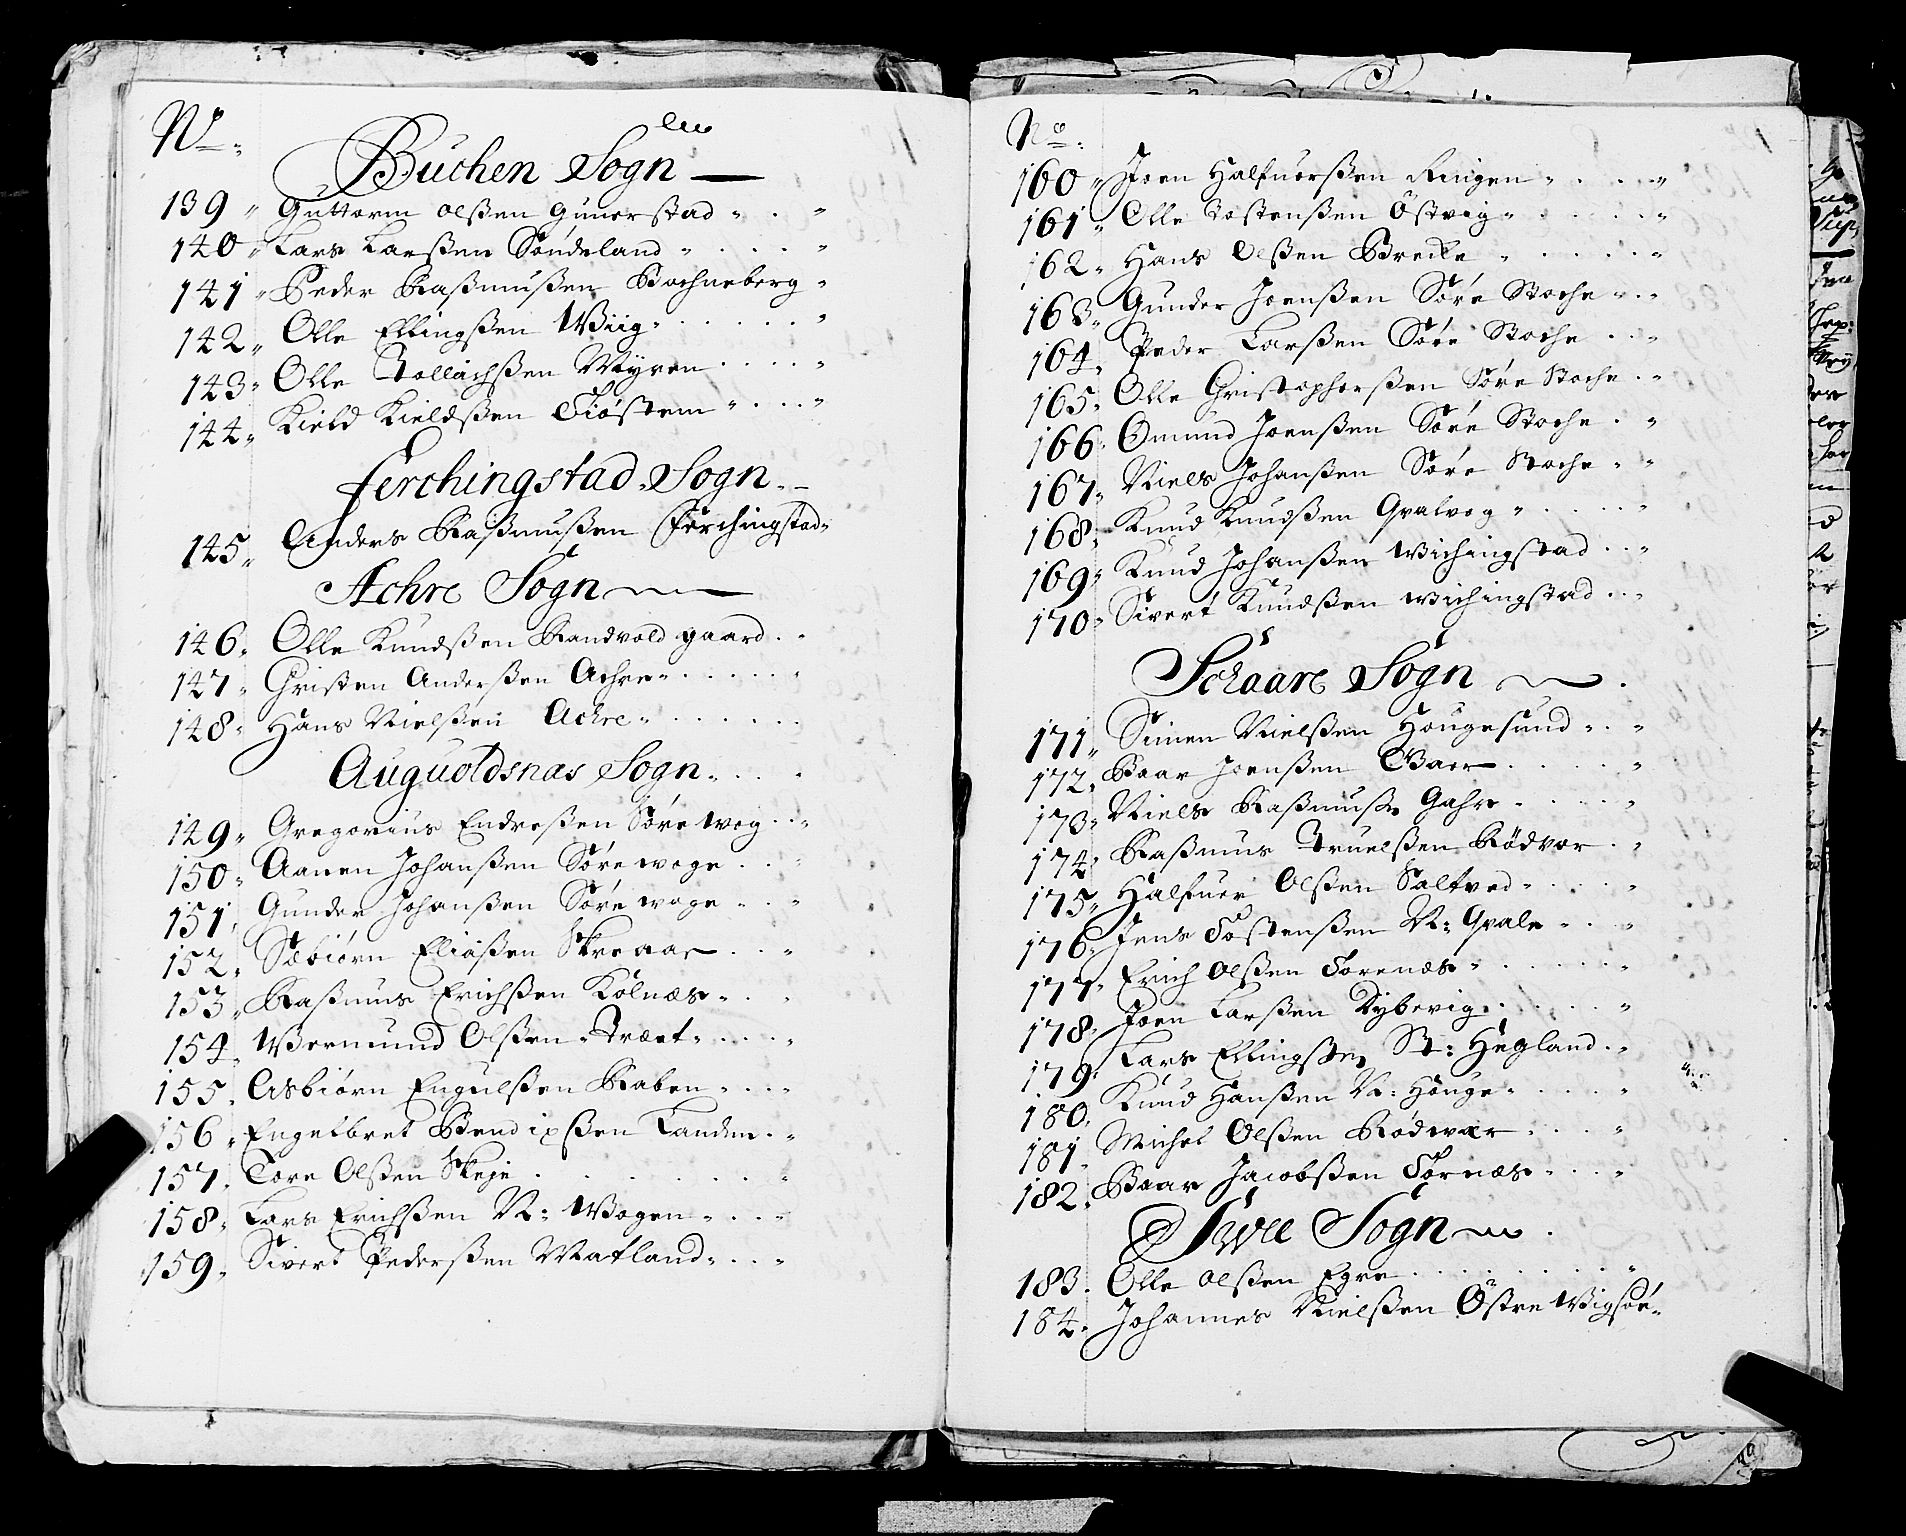 No.
Buchen Sogn
139 Guttorm Olßen Gunerstad
140 Lars Larßen Söndeland
141 Peder Raßmußen Bochneberg
142 Olle Ellingßen Wiig
143 Olle Tollachßen Myren
144 Kield Kieldßen Tiöstem
Ferchingstad Sogn
145 Anders Raßmußen Ferchingstad
Achre Sogn
146 Olle Knudßen Sandvold gaard
147 Christen Anderßen Achre
148 Hans Nielßen Achre
Auguoldsnas Sogn
149 Gregorius Endreßen Söre wog
150 Aanen Johanßen Söre woge
151 Gunder Johanßen Söre woge
152 Sæbiörn Eliaßen Skreaar
153 Raßmus Erichßen Kolnæs
154 Wermund Olßen Træet
155 Asbiörn Engelßen Raben
156 Engelbret Bendixßen Landen
157 Tore Olßen Skeje
158 Lars Erichßen N: Wogen
159 Sivert Pederßen Matland
No.
160 Joen Halfuorßen Ringen
161 Olle Tostenßen Östvig
162 Hans Olßen Brecke
163 Gunder Joenßen Söre Stoche
164 Peder Larßen Söre Stoche
165 Olle Christopherßen Söre Stoche
166 Omund Joenßen Söre Stoche
167 Niels Johanßen Söre Stoche
168 Knud Knudßen Qvalvog
169 Knud Johanßen Wichingstad
170 Sivert Knudßen Wichingstad
Schaare Sogn
171 Simen Nielßen Hougesund
172 Baar Joenßen Gaar
173 Niels Raßmuß: Gahre
174 Raßmus Truelßen Rödvær
175 Halfuer Olßen Saltved
176 Jens Tostenßen N: Qvale
177 Erich Olßen Forenæs
178 Joen Larßen Dybevig
179 Lars Ellingßen St: Hegland
180 Knud Hanßen N: Houge
181 Michel Olßen Rödwær
182 Baar Jacobßen Fornæs
Siwee Sogn
183 Olle Olßen Egre
184 Johannes Nielßen Östre Wigsöe